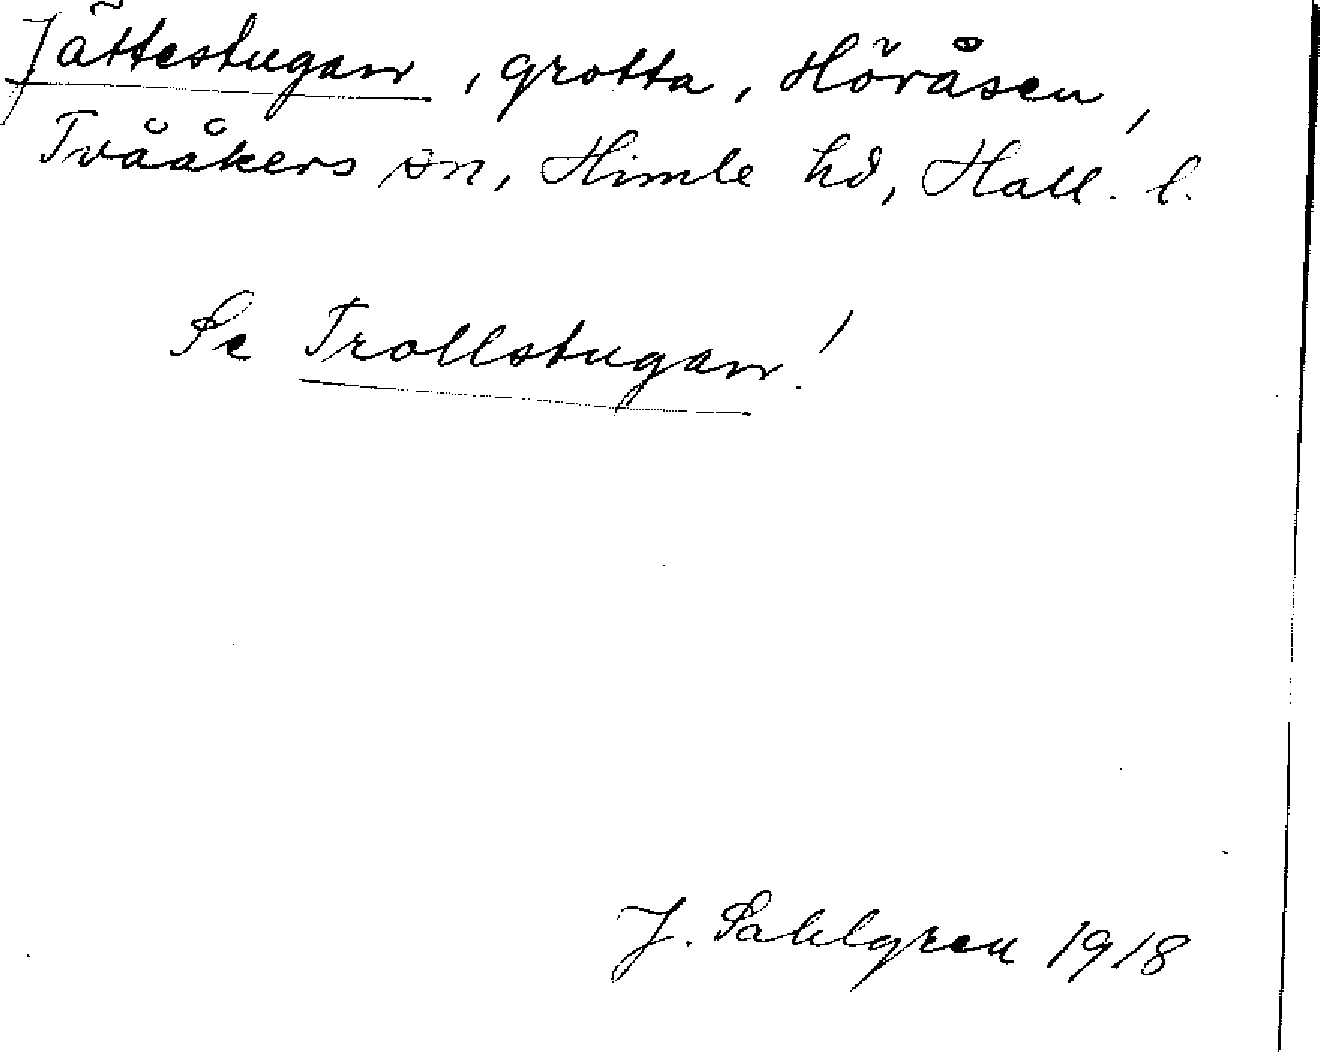 Jättestugan, grotta, Höråsen,
Tvååkers sn, Himle hd, Hall. l.
Se Trollstugan!
J. Sahlgren 1918